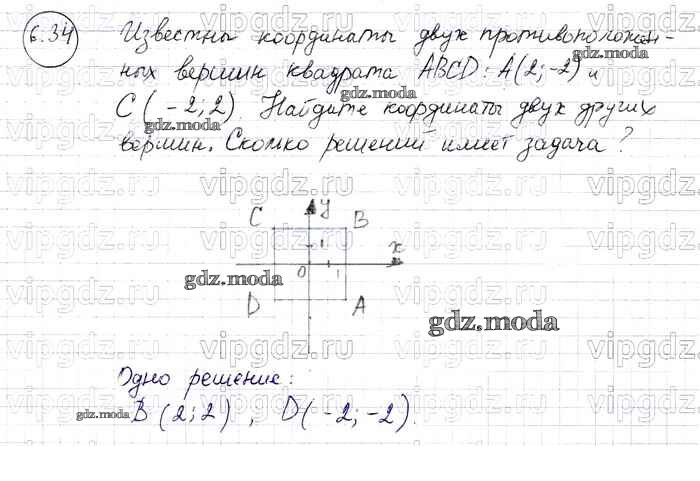 6.34 Известны координаты двух противополож-
ных вершин квадрата ABCD: A(2;-2) и
C(-2;2). Найдите координаты двух других
вершин. Сколько решений имеет задача?
C y B
1 x
0 1
D A
Одно решение:
B(2;2), D(-2;-2).
gdz.moda
gdz.moda
gdz.moda
gdz.moda
gdz.moda
gdz.moda
vipgdz.ru